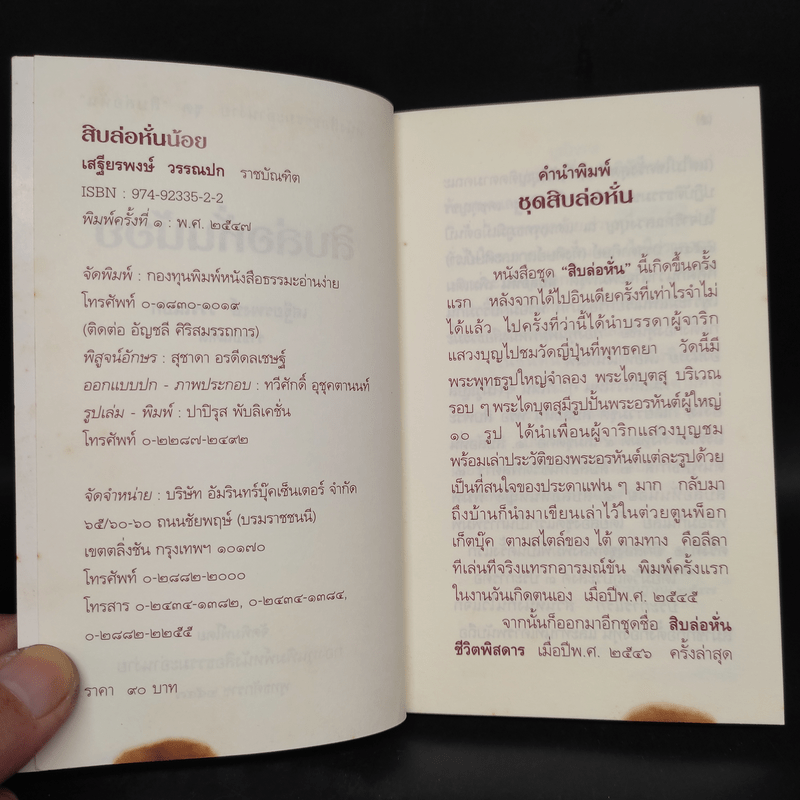 สิบล่อหั่นน้อย
เสฐียรพงษ์ วรรณปก ราชบัณฑิต
ISBN : 974-92335-2-2
พิมพ์ครั้งที่ ๑ : พ.ศ. ๒๕๔๗
จัดพิมพ์ : กองทุนพิมพ์หนังสือธรรมะอ่านง่าย
โทรศัพท์ ๐-๑๘๓๐-๑๐๑๙
(ติดต่อ อัญชลี ศิริสมรรถการ)
พิสูจน์อักษร : สุชาดา อรดีดลเชษฐ์
ออกแบบปก - ภาพประกอบ : ทวีศักดิ์ อุชุคตานนท์
รูปเล่ม - พิมพ์ : ปาปิรุส พับลิเคชั่น
โทรศัพท์ ๐-๒๒๘๗-๒๔๙๒
จัดจำหน่าย : บริษัท อัมรินทร์บุ๊คเซ็นเตอร์ จำกัด
๖๕/๖๐-๖๐ ถนนชัยพฤกษ์ (บรมราชชนนี)
เขตตลิ่งชัน กรุงเทพฯ ๑๐๑๗๐
โทรศัพท์ ๐-๒๘๘๒-๒๐๐๐
โทรสาร ๐-๒๔๓๔-๑๓๘๒, ๐-๒๔๓๔-๑๓๘๔,
๐-๒๘๘๒-๒๒๕๕
ราคา ๙๐ บาท
คำนำพิมพ์
ชุดสิบล่อหั่น
หนังสือชุด “สิบล่อหั่น” นี้เกิดขึ้นครั้ง
แรก หลังจากได้ไปอินเดียครั้งที่เท่าไรจำไม่
ได้แล้ว ไปครั้งที่ว่านี้ได้นำบรรดาผู้จาริก
แสวงบุญไปชมวัดญี่ปุ่นที่พุทธคยา วัดนี้มี
พระพุทธรูปใหญ่จำลอง พระไดบุตสุ บริเวณ
รอบ ๆ พระไดบุตสุมีรูปปั้นพระอรหันต์ผู้ใหญ่
๑๐ รูป ได้นำเพื่อนผู้จาริกแสวงบุญชม
พร้อมเล่าประวัติของพระอรหันต์แต่ละรูปด้วย
เป็นที่สนใจของประดาแฟน ๆ มาก กลับมา
ถึงบ้านก็นำมาเขียนเล่าไว้ในต่วยตูนพ็อก
เก็ตบุ๊ค ตามสไตล์ของ ไต้ ตามทาง คือลีลา
ทีเล่นทีจริงแทรกอารมณ์ขัน พิมพ์ครั้งแรก
ในงานวันเกิดตนเอง เมื่อปีพ.ศ. ๒๕๔๕
จากนั้นก็ออกมาอีกชุดชื่อ สิบล่อหั่น
ชีวิตพิสดาร เมื่อปีพ.ศ. ๒๕๔๖ ครั้งล่าสุด